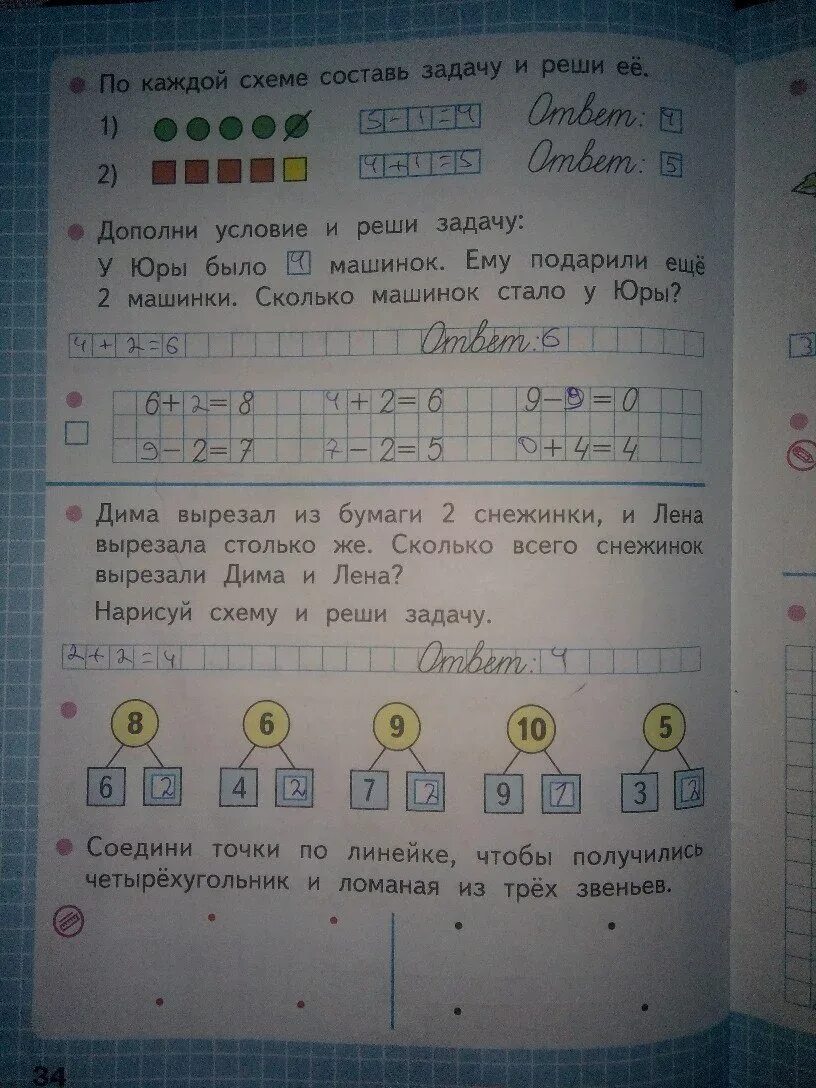 По каждой схеме составь задачу и реши её.
1) 5-1=4 Ответ: 4
2) 4+1=5 Ответ: 5
Дополни условие и реши задачу:
У Юры было 4 машинок. Ему подарили ещё
2 машинки. Сколько машинок стало у Юры?
4+2=6 Ответ: 6
6+2=8 4+2=6 9-9=0
9-2=7 7-2=5 0+4=4
Дима вырезал из бумаги 2 снежинки, и Лена
вырезала столько же. Сколько всего снежинок
вырезали Дима и Лена?
Нарисуй схему и реши задачу.
2+2=4 Ответ: 4
8 6 9 10 5
6 2 4 2 7 2 9 1 3 2
Соедини точки по линейке, чтобы получились
четырёхугольник и ломаная из трёх звеньев.
34
3